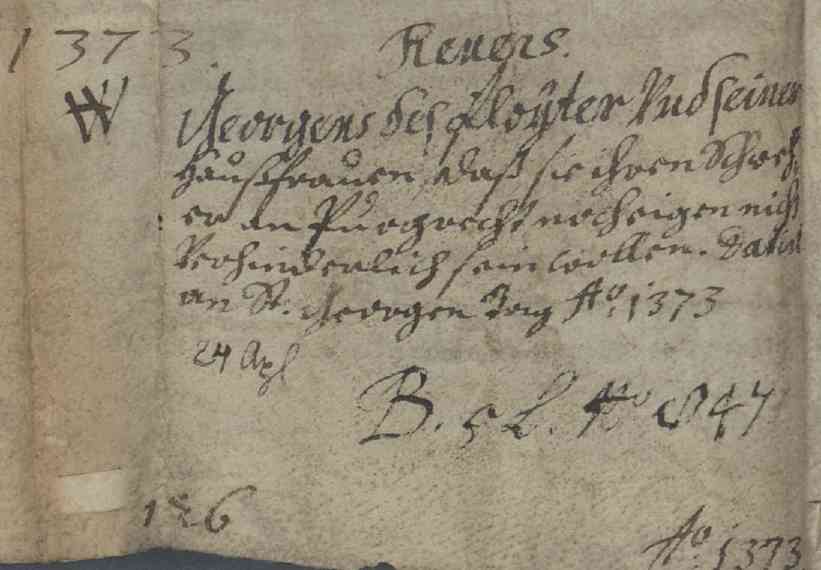 1373. Reuers.
W Georgens des ployter Vnd seiner
Haußfrauen, daß sie ihren Schweh
er an Purgrecht noch eigen nicht
Verhinderlich sein wollen. Datum
an St. Georgen Tag Aō. 1373
24 Apl
B. 5 L. No 847
126
Aō. 1373